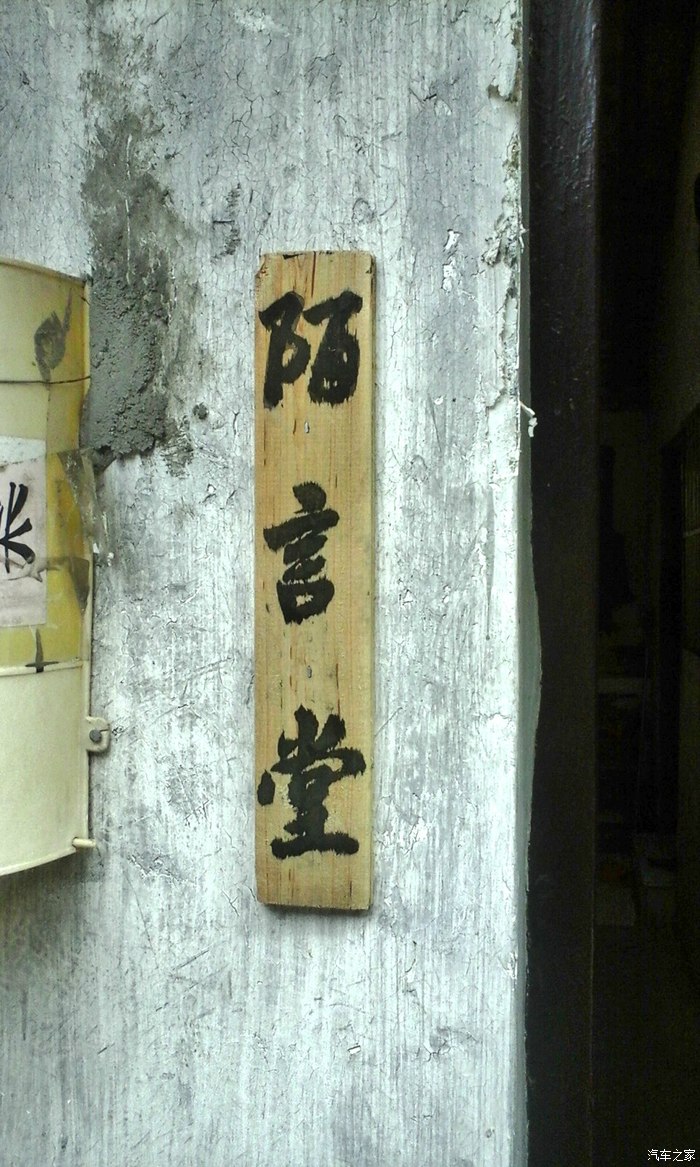 陌言堂
汽车之家